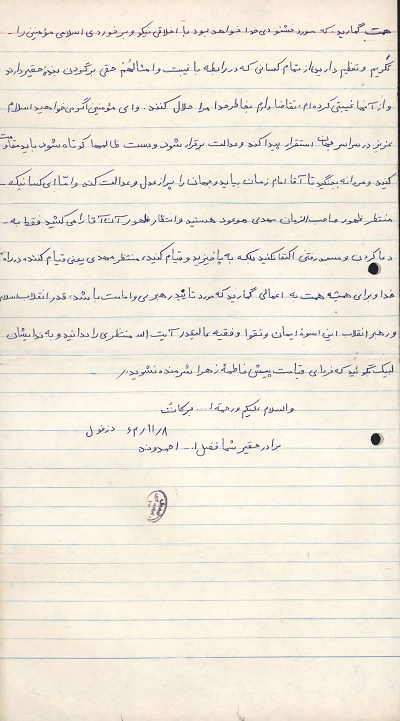 همت گمارید، که مورد خشنودی خدا خواهد بود با اخلاقی نیکو و برخوردی اسلامی مؤمنی را
تکریم و تعظیم دارید، از تمام کسانی که در رابطه با غیبت و امثالهم حقی برگردن بنده حقیر دارند
و از آنها غیبتی کرده ام، تقاضا دارم بخاطر خدا مرا حلال کنند. وای مؤمنین اگر می خواهید اسلام
عزیز در سراسر جهان استقرار پیدا کند و عدالت برقرار شود و دست ظالمها کوتاه شود باید مقاومت
کنید و مردانه بجنگید تا آقا امام زمان بیاید و جهان را پر از عدل و عدالت کند و امّا ای کسانیکه
منتظر ظهور صاحب الزمان مهدی موعود هستید و انتظار ظهور آن آقا را می کشید فقط به
دعا کردن و مسجد رفتن اکتفا نکنید بلکه به پا خیزید و قیام کنید، منتظر مهدی یعنی قیام کننده در راه
خدا و برای همیشه همت به اعمالی گمارید که مورد تأیید رهبری و امامت باشد، قدر انقلاب اسلامی
و رهبر انقلاب این اسوهٔ ایمان و تقوا و فقیه عالیقدر آیت الله منتظری را بدانید و به ندایشان
لبیک گوئید که فردای قیامت پیش فاطمهٔ زهرا شرمنده نشوید،
والسلام علیکم و رحمة ا... و برکاته
۶۴/۱۱/۸ دزفول
برادر حقیر شما فضل ا... احمدوند